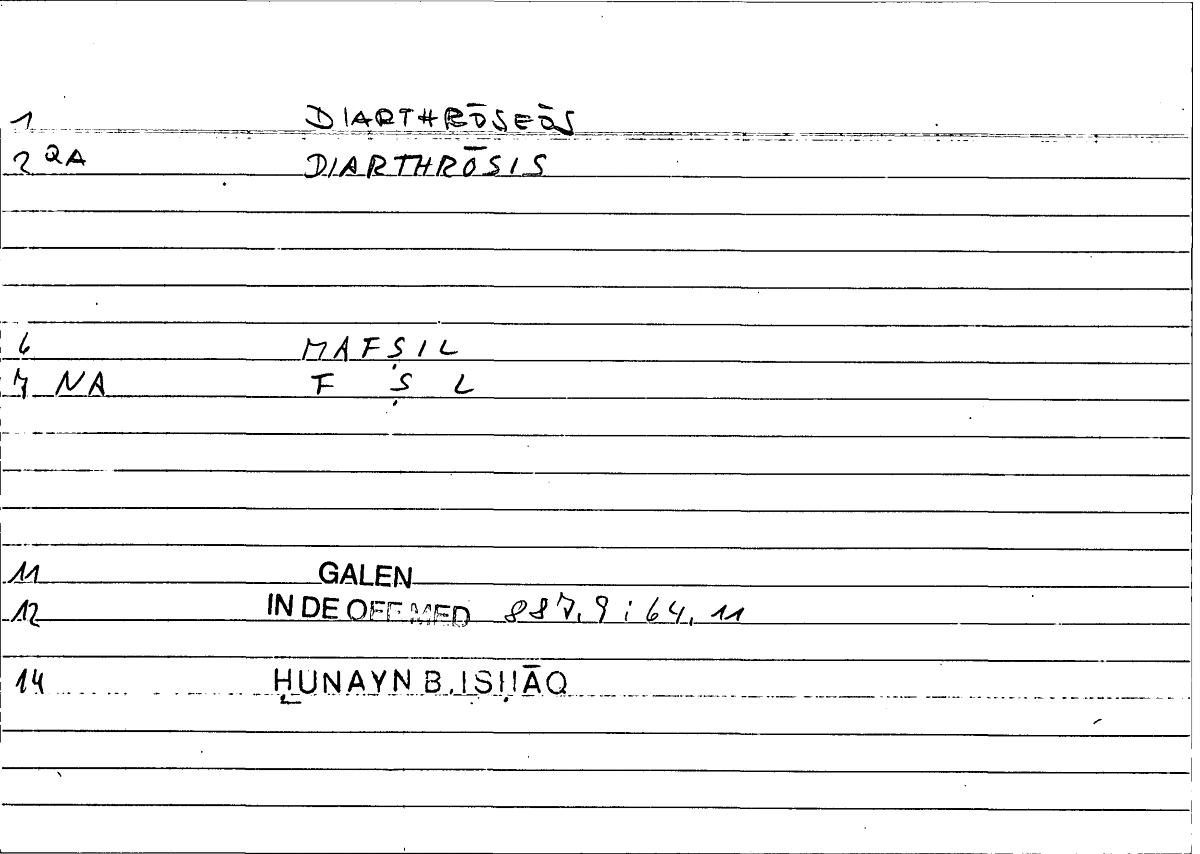 1 DIARTHRŌSEŌS
2 QA DIARTHRŌSIS
6 MAFṢIL
7 NA F Ṣ L
11 GALEN
12 IN DE OFF MED 887,9 : 64,11
14 ḤUNAYN B. ISḤĀQ